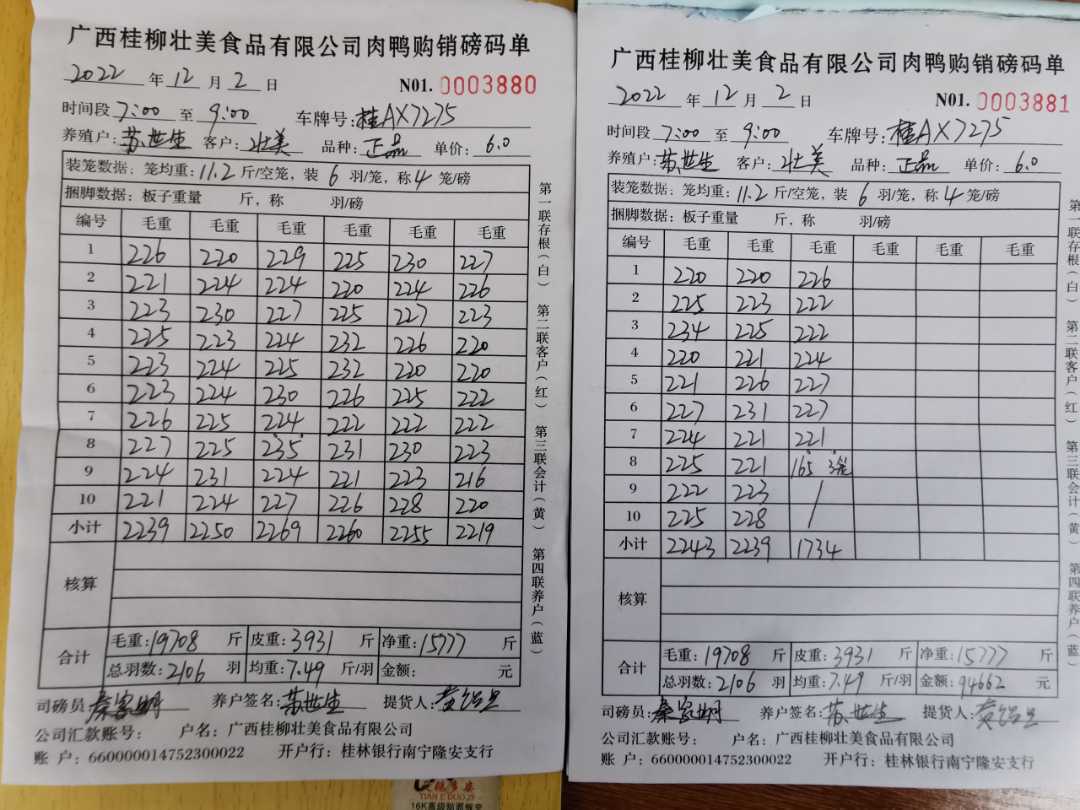 广西桂柳壮美食品有限公司肉鸭购销磅码单
2022 年 12 月 2 日 N01. 0003880
时间段 7:00 至 9:00 车牌号: 桂AX7275
养殖户: 苏世生 客户: 壮美 品种: 正品 单价: 6.0
装笼数据: 笼均重: 11.2 斤/空笼, 装 6 羽/笼, 称 4 笼/磅
捆脚数据: 板子重量 斤, 称 羽/磅
编号 毛重 毛重 毛重 毛重 毛重 毛重
1 226 220 229 225 230 227
2 221 224 224 220 224 226
3 223 230 227 225 227 223
4 225 223 224 232 226 220
5 223 224 225 232 220 220
6 223 224 230 226 225 222
7 226 225 224 222 222 222
8 227 225 235 231 230 223
9 224 231 224 221 223 216
10 221 224 227 226 228 220
小计 2239 2250 2269 2260 2255 2219
核算
合计 毛重: 19708 斤 皮重: 3931 斤 净重: 15777 斤
总羽数: 2106 羽 均重: 7.49 斤/羽 金额: 元
司磅员: 秦家明 养户签名: 苏世生 提货人:
公司汇款账号: 户名: 广西桂柳壮美食品有限公司
账 户: 660000014752300022 开户行: 桂林银行南宁隆安支行
第一联存根(白) 第二联客户(红) 第三联会计(黄) 第四联养户(蓝)
TIAN E DUO ZI
广西桂柳壮美食品有限公司肉鸭购销磅码单
2022 年 12 月 2 日 N01. 0003881
时间段 7:00 至 9:00 车牌号: 桂AX7275
养殖户: 苏世生 客户: 壮美 品种: 正品 单价: 6.0
装笼数据: 笼均重: 11.2 斤/空笼, 装 6 羽/笼, 称 4 笼/磅
捆脚数据: 板子重量 斤, 称 羽/磅
编号 毛重 毛重 毛重 毛重 毛重 毛重
1 220 220 226
2 225 223 222
3 234 225 222
4 220 221 224
5 221 226 227
6 227 231 227
7 224 221 221
8 225 221 165 3笼
9 222 223 /
10 225 228 /
小计 2243 2239 1734
核算
合计 毛重: 19708 斤 皮重: 3931 斤 净重: 15777 斤
总羽数: 2106 羽 均重: 7.49 斤/羽 金额: 94662 元
司磅员: 秦家明 养户签名: 苏世生 提货人:
公司汇款账号: 户名: 广西桂柳壮美食品有限公司
账 户: 660000014752300022 开户行: 桂林银行南宁隆安支行
第一联存根(白) 第二联客户(红) 第三联会计(黄) 第四联养户(蓝)